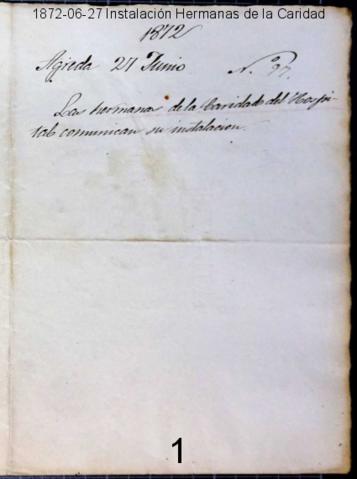 1872-06-27 Instalación Hermanas de la Caridad
1872
Agreda 27 Junio N.º 97.
Las hermanas de la Caridad del Hospi-
tal comunican su instalacion.
1